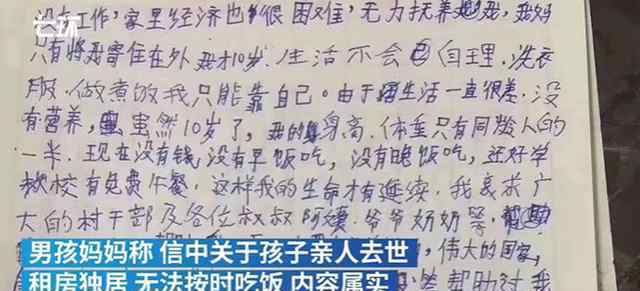 七环
没有工作,家里经济也很困难,无力抚养我,我妈
只有将我寄住在外 我才10岁.生活不会自理.洗衣
服.做煮饭我只能靠自己。由于生活一直很差.没
有营养,虽然10岁了,我的身高.体重只有同龄人的
一半.现在没有钱,没有早饭吃,没有晚饭吃,还好学
校有免费午餐.这样我的生命才有延续.我哀求广
大的村干部及各位叔叔阿姨.爷爷奶奶等,
伟大的国家,
男孩妈妈称 信中关于孩子亲人去世
帮助过我
租房独居 无法按时吃饭 内容属实